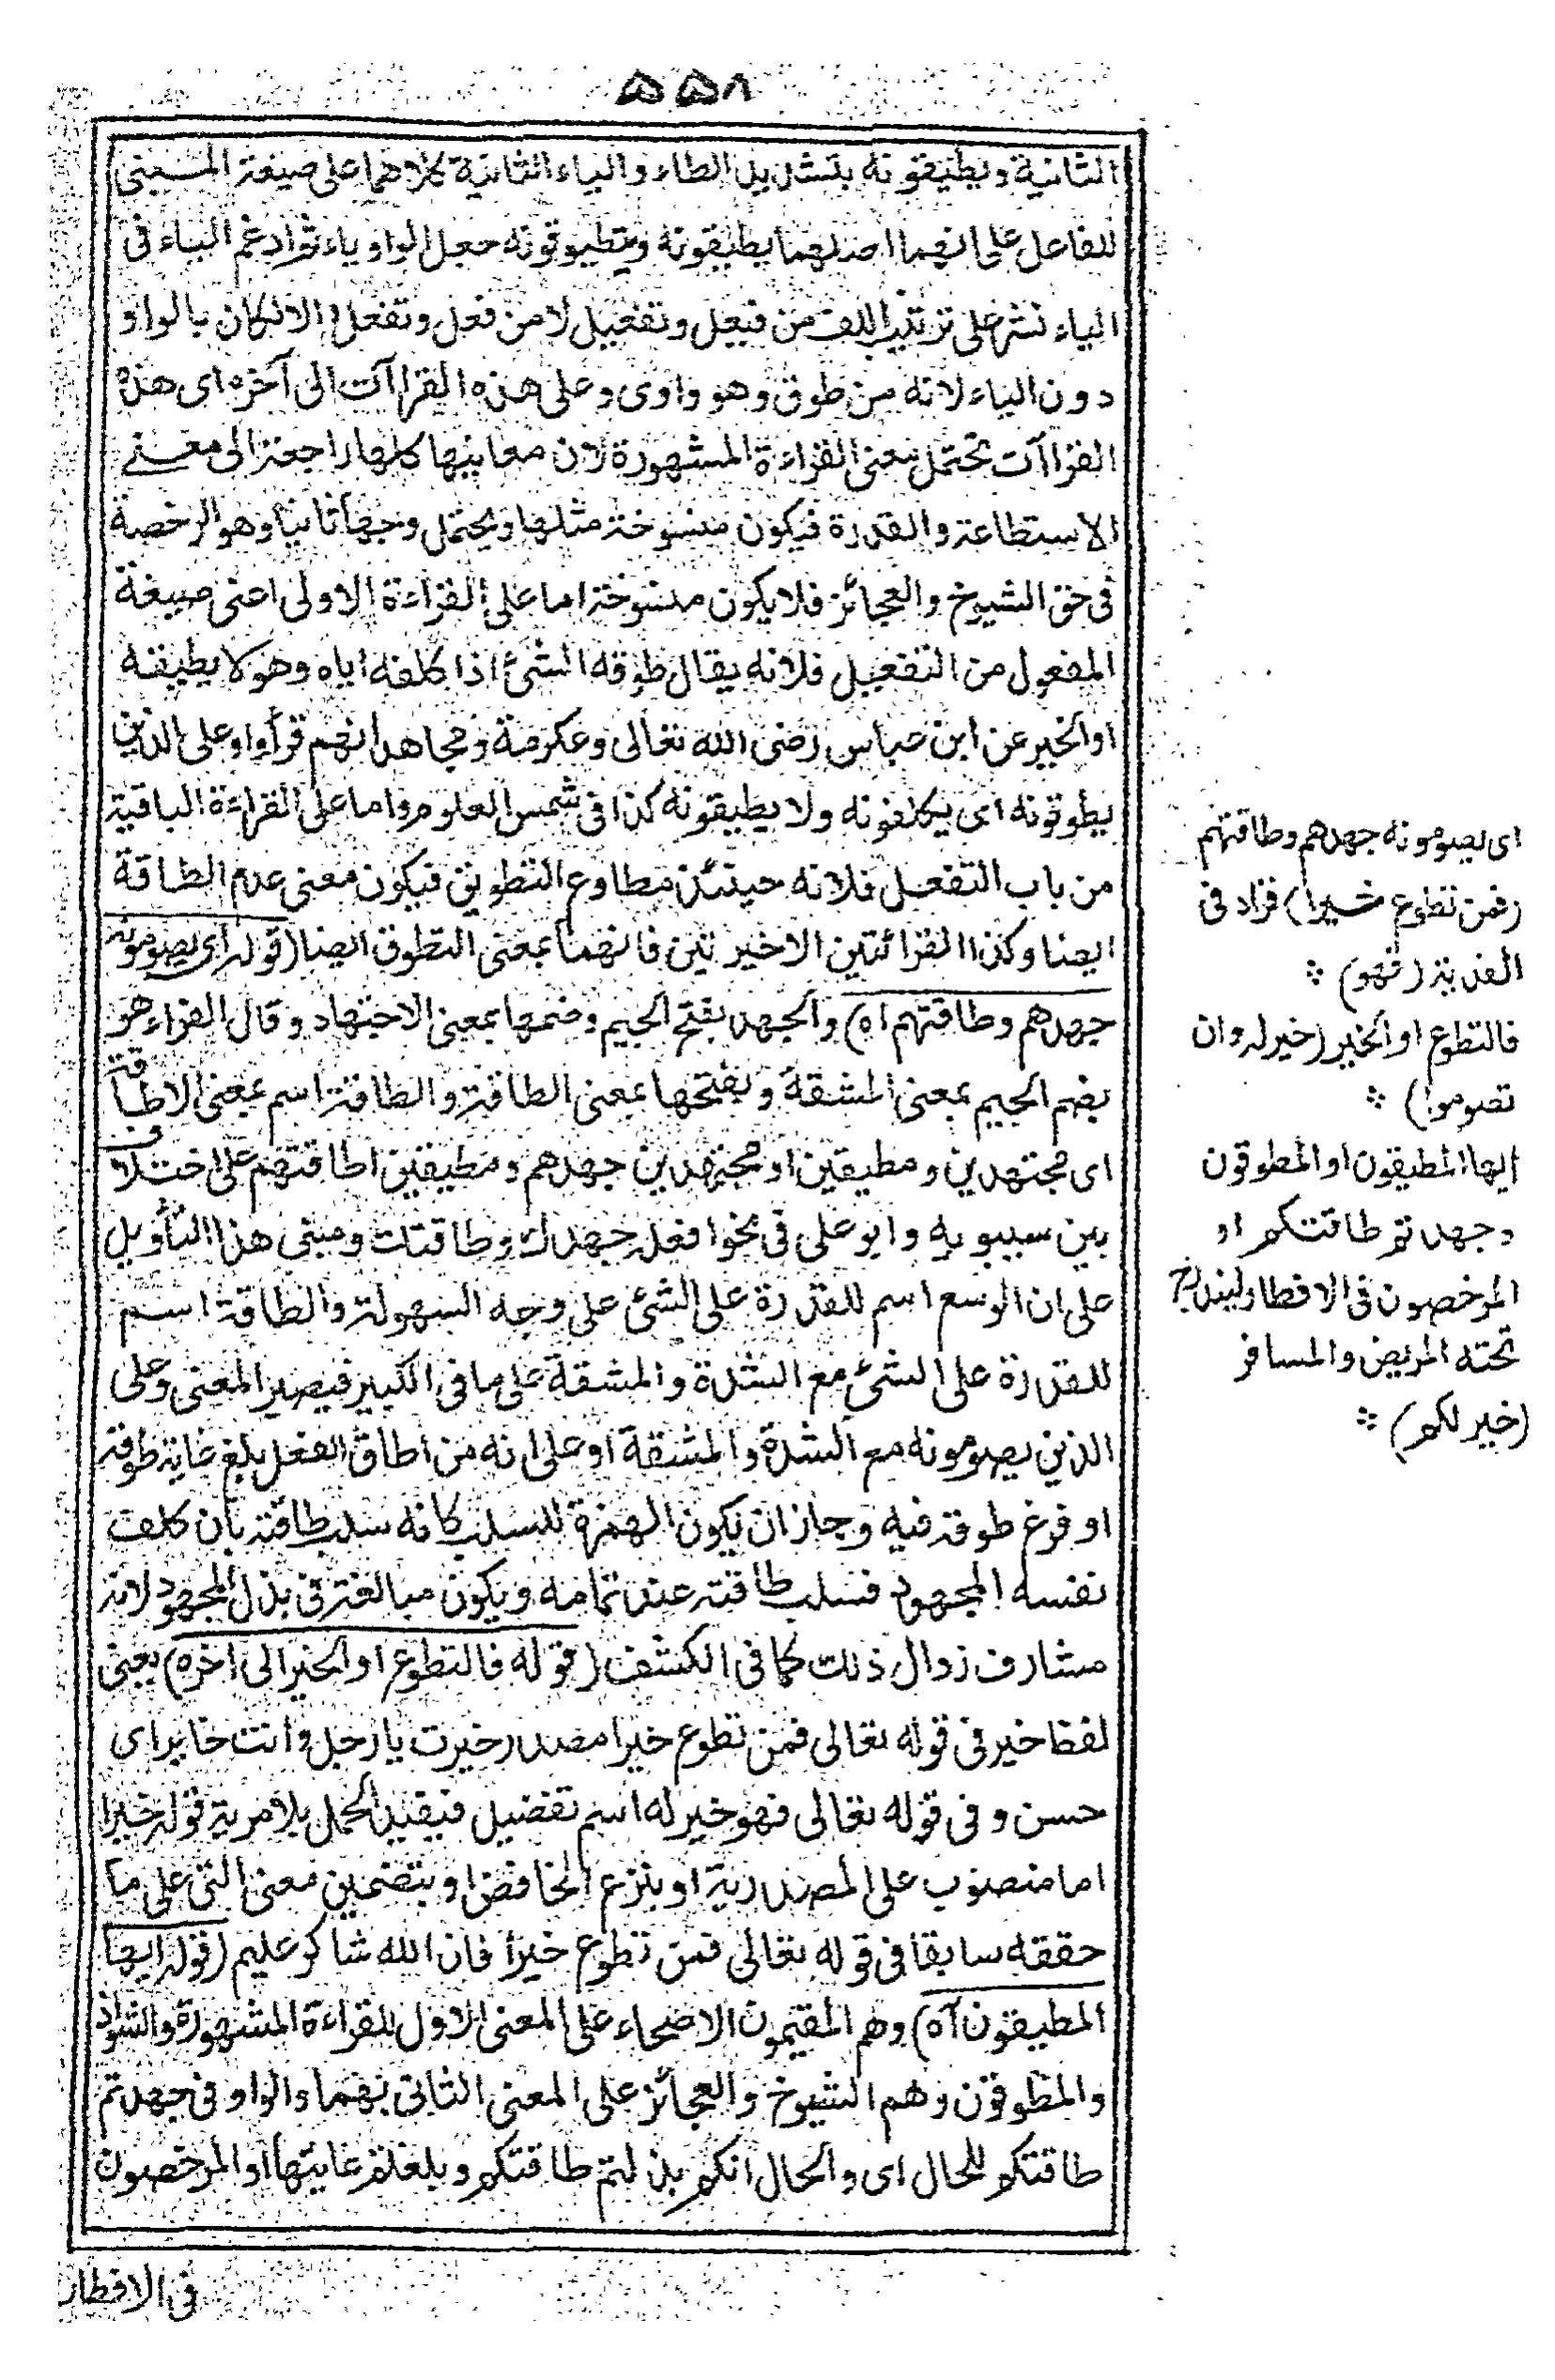 ٥٥٨
الثانية ويطيقونه بتشديد الطاء والياء الثانية كلاهما على صيغة المبنى
للفاعل على انهما اصلهما يطيقونه ويتطيوقونه جعل الواو ياء ثم ادغم الياء فى
الياء نشر على ترتيب اللف من فيعل وتفيعل لا من فعل وتفعل والا لكان بالواو
دون الياء لانه من طوق وهو واوى وعلى هذه القراآت الى آخره اى هذه
القراآت تحتمل معنى القراءة المشهورة لان معانيها كلها راجعة الى معنى
الاستطاعة والقدرة فيكون منسوخة مثلها ويحتمل وجها ثانيا وهو الرخصة
فى حق الشيوخ والعجائز فلا يكون منسوخة اما على القراءة الاولى اعنى صيغة
المفعول من التفعيل فلانه يقال طوقه الشئ اذا كلفه اياه وهو لا يطيقه
او الخير عن ابن عباس رضى الله تعالى وعكرمة ومجاهد انهم قرأوا وعلى الذين
يطوقونه اى يكلفونه ولا يطيقونه كذا فى شمس العلوم واما على القراءة الباقية
من باب التفعل فلانه حينئذ مطاوع التطويق فيكون معنى عدم الطاقة
ايضا وكذا القرائتين الاخيرتين فانهما بمعنى التطوق ايضا (قوله اى يصومونه
جهدهم وطاقتهم اه) والجهد بفتح الجيم وضمها بمعنى الاجتهاد وقال الفراء هو
بضم الجيم بمعنى المشقة وبفتحها بمعنى الطاقة والطاقة اسم بمعنى الاطاقة
اى مجتهدين ومطيقين او مجتهدين جهدهم ومطيقين اطاقتهم على اختلاف
بين سيبويه وابو على فى نحو افعل جهدك وطاقتك ومبنى هذا التأويل
على ان الوسع اسم للقدرة على الشئ على وجه السهولة والطاقة اسم
للقدرة على الشئ مع الشدة والمشقة على ما فى الكبير فيصير المعنى وعلى
الذين يصومونه مع الشدة والمشقة او على انه من اطاق الفعل بلغ غاية طوقه
او فرغ طوقه فيه وجاز ان يكون الهمزة للسلب كانه سلب طاقته بان كلف
نفسه المجهود فسلب طاقته عند تمامه ويكون مبالغة فى بذل المجهود لانه
مشارف زوال ذلك كما فى الكشف (قوله فالتطوع او الخير الى اخره) يعنى
لفظ خير فى قوله تعالى فمن تطوع خيرا مصدر خيرت يا رجل وانت خاير اى
حسن و فى قوله تعالى فهو خير له اسم تفضيل فيفيد الحمل بلا مرية قوله خيرا
اما منصوب على المصدرية او بنزع الخافض او بتضمين معنى اتى على ما
حققه سابقا فى قوله تعالى فمن تطوع خيرا فان الله شاكر عليم (قوله ايها
المطيقون آه) وهم المقيمون الاصحاء على المعنى الاول للقراءة المشهورة والشواذ
والمطوقون وهم الشيوخ والعجائز على المعنى الثانى لهما والواو فى جهدتم
طاقتكم للحال اى والحال انكم بذلتم طاقتكم وبلغتم غايتها او المرخصون
فى الافطار
اى يصومونه جهدهم وطاقتهم
(فمن تطوع خيرا) فزاد فى
الفدية (فهو) ⁘
فالتطوع او الخير (خير له وان
تصوموا) ⁘
ايها المطيقون او المطوقون
وجهدتم طاقتكم او
المرخصون فى الافطار ليندرج
تحته المريض والمسافر
(خير لكم) ⁘